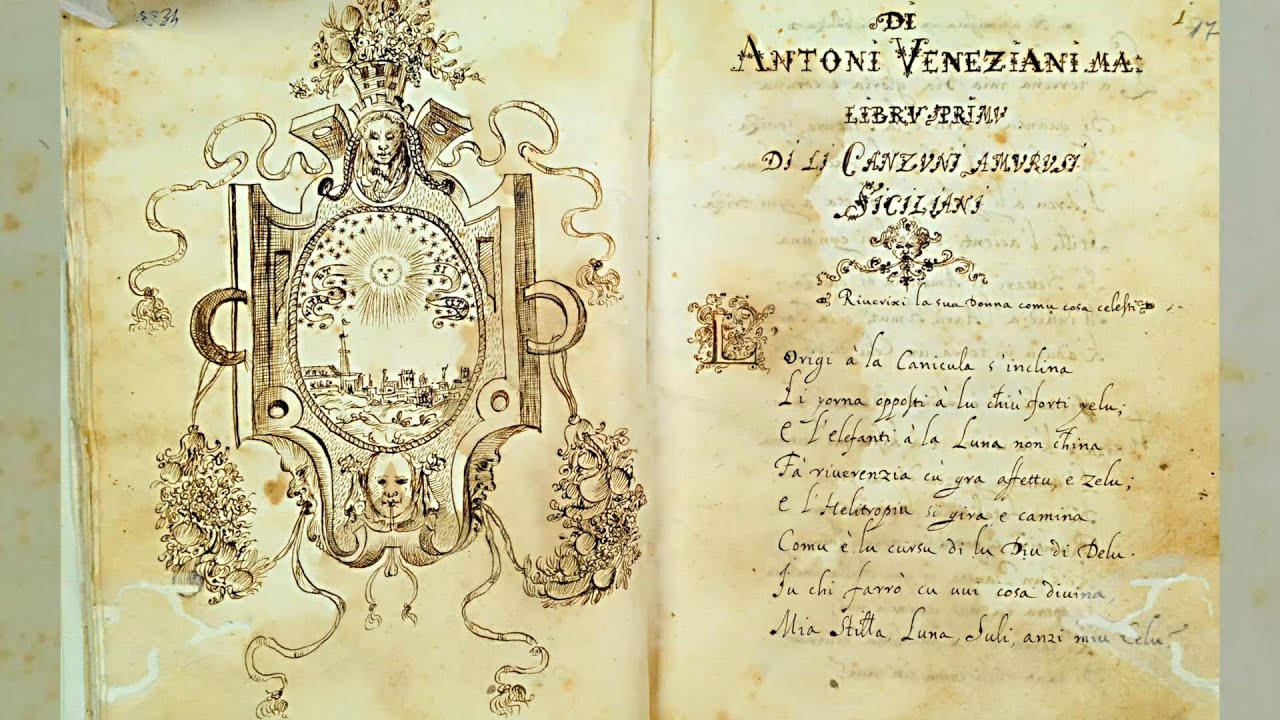 DI
ANTONI VENEZIANI MA:
LIBRV PRIMV
DI LI CANZVNI AMVRVSI
SICILIANI
Riverixi la sua Donna comu cosa celesti
L'Origi à la Canicula s'inclina
Li yorna opposti à lu chiù forti yelu;
E l'elefanti à la Luna non china
Fà riverenzia cù gra affettu, e zelu;
E l'Helitropiu si gira e camina
Comu è lu cursu di lu Diu di Delu.
Iu chi farrò cu vui cosa divina,
Mia Stilla, Luna, Suli, anzi miu Celu